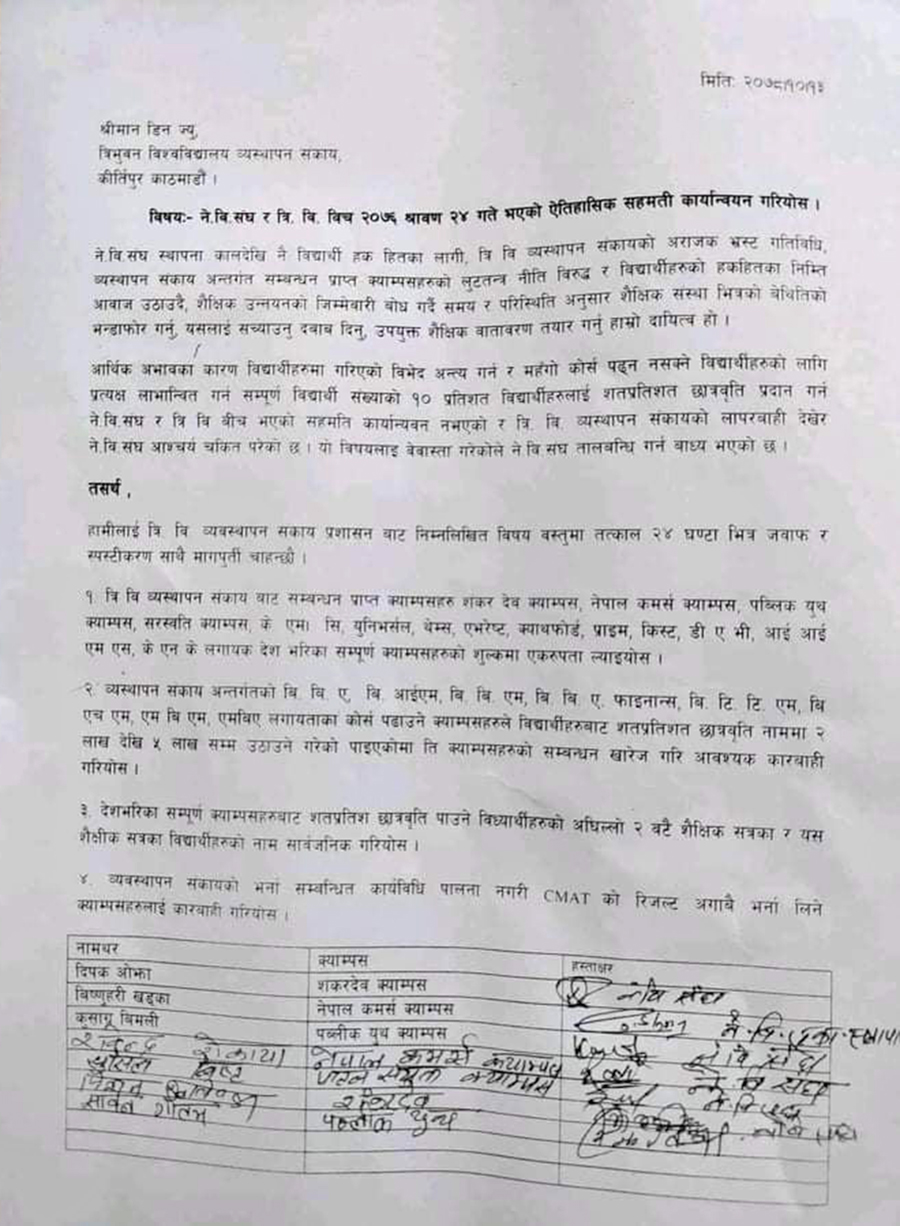 मिति: २०७८।१०।१३
श्रीमान डिन ज्यु,
त्रिभुवन विश्वविद्यालय व्यस्थापन संकाय,
कीर्तिपुर काठमाडौं ।
विषय:- ने.बि.संघ र त्रि. बि. विच २०७६ श्रावण २४ गते भएको ऐतिहासिक सहमती कार्यान्वयन गरियोस ।
ने.बि.संघ स्थापना कालदेखि नै विद्यार्थी हक हितका लागी, त्रि वि व्यस्थापन संकायको अराजक भ्रस्ट गतिविधि,
व्यस्थापन संकाय अन्तर्गत सम्बन्धन प्राप्त क्याम्पसहरुको लुटतन्त्र नीति विरुद्ध र विद्यार्थीहरुको हकहितका निम्ति
आवाज उठाउदै, शैक्षिक उन्नयनको जिम्मेवारी बोध गर्दै समय र परिस्थिति अनुसार शैक्षिक संस्था भित्रको बेथितिको
भन्डाफोर गर्नु, यसलाई सच्याउनु दवाब दिनु, उपयुक्त शैक्षिक वातावरण तयार गर्नु हाम्रो दायित्व हो ।
आर्थिक अभावका कारण विद्यार्थीहरुमा गरिएको विभेद अन्त्य गर्न र महँगो कोर्स पढ्न नसक्ने विद्यार्थीहरुको लागि
प्रत्यक्ष लाभान्वित गर्न सम्पूर्ण विद्यार्थी संख्याको १० प्रतिशत विद्यार्थीहरुलाई शतप्रतिशत छात्रवृति प्रदान गर्न
ने.बि.संघ र त्रि बि बीच भएको सहमति कार्यान्यवन नभएको र त्रि. बि. व्यस्थापन संकायको लापरवाही देखेर
ने.बि.संघ आश्चर्य चकित परेको छ । यो विषयलाइ बेवास्ता गरेकोले ने.बि.संघ तालबन्धि गर्न बाध्य भएको छ ।
तसर्थ ,
हामीलाई त्रि. वि व्यवस्थापन संकाय प्रशासन बाट निम्नलिखित विषय वस्तुमा तत्काल २४ घण्टा भित्र जवाफ र
स्पस्टीकरण साथै मागपुर्ती चाहन्छौ ।
१. त्रि वि व्यस्थापन संकाय बाट सम्बन्धन प्राप्त क्याम्पसहरु शंकर देव क्याम्पस, नेपाल कमर्स क्याम्पस, पब्लिक युथ
क्याम्पस, सरस्वति क्याम्पस, के एम। सि, युनिभर्सल, थेम्स, एभरेष्ट, क्याथफोर्ड, प्राइम, किस्ट, डी ए भी, आई आई
एम एस, के एन के लगायक देश भरिका सम्पूर्ण क्याम्पसहरुको शुल्कमा एकरुपता ल्याइयोस ।
२. व्यस्थापन संकाय अन्तर्गतको बि. बि. ए, बि. आईएम, बि. बि. एम, बि. बि. ए. फाइनान्स, बि. टि. टि. एम, बि
एच एम, एम बि एम, एमबिए लगायताका कोर्स पढाउने क्याम्पसहरुले विद्यार्थीहरुबाट शतप्रतिशत छात्रवृति नाममा २
लाख देखि ५ लाख सम्म उठाउने गरेको पाइएकोमा ति क्याम्पसहरुको सम्बन्धन खारेज गरि आवश्यक कारबाही
गरियोस ।
३. देशभरिका सम्पूर्ण क्याम्पसहरुबाट शतप्रतिश छात्रवृति पाउने विध्यार्थीहरुको अघिल्लो २ वटै शैक्षिक सत्रका र यस
शैक्षीक सत्रका विद्यार्थीहरुको नाम सार्वजनिक गरियोस ।
४. व्यवस्थापन संकायको भर्ना सम्बन्धित कार्यविधि पालना नगरी CMAT को रिजल्ट अगाबै भर्ना लिने
क्याम्पसहरुलाई कारबाही गरियोस ।
नामथर क्याम्पस हस्ताक्षर
दिपक ओझा शंकरदेव क्याम्पस
बिष्णुहरी खड्का नेपाल कमर्स क्याम्पस
कुसाग्र बिमली पब्लीक युथ क्याम्पस
नेपाल कमर्स क्याम्पस
बिष्ट क्याम्पस
शंकरदेव
पब्लीक युथ